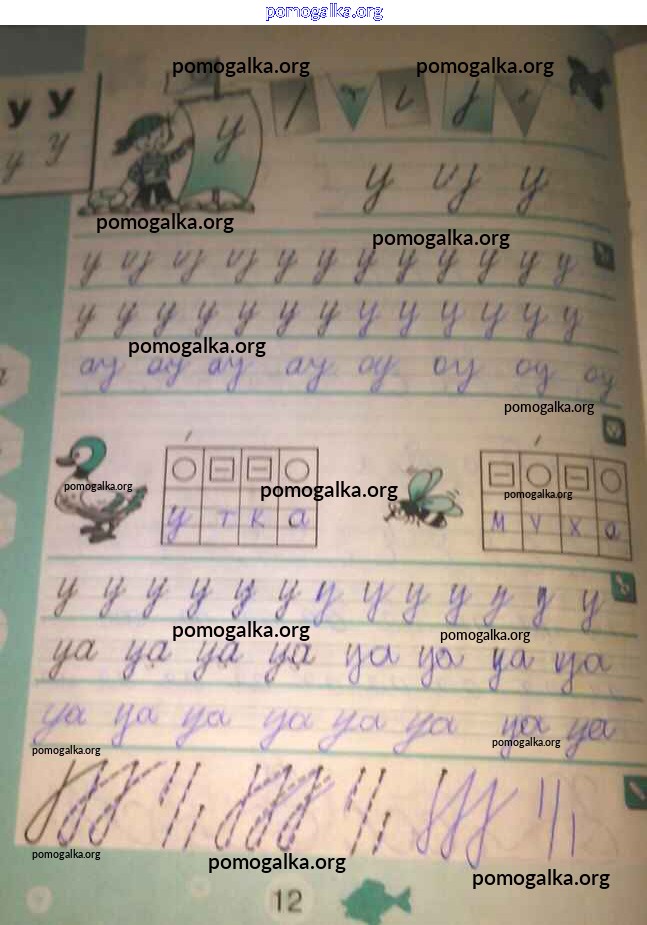 pomogalka.org
pomogalka.org pomogalka.org
у У
у У
у
у
pomogalka.org
у у у
pomogalka.org
у у у у у у у у у у у у
у у у у у у у у у у у у у
pomogalka.org
ау ау ау ау оу оу оу оу
pomogalka.org
pomogalka.org
pomogalka.org
pomogalka.org
у т к а
м у х а
у у у у у у у у у у у у у
pomogalka.org
pomogalka.org
уа уа уа уа уа уа уа уа
уа уа уа уа уа уа уа уа
pomogalka.org
pomogalka.org
pomogalka.org
pomogalka.org
pomogalka.org
12